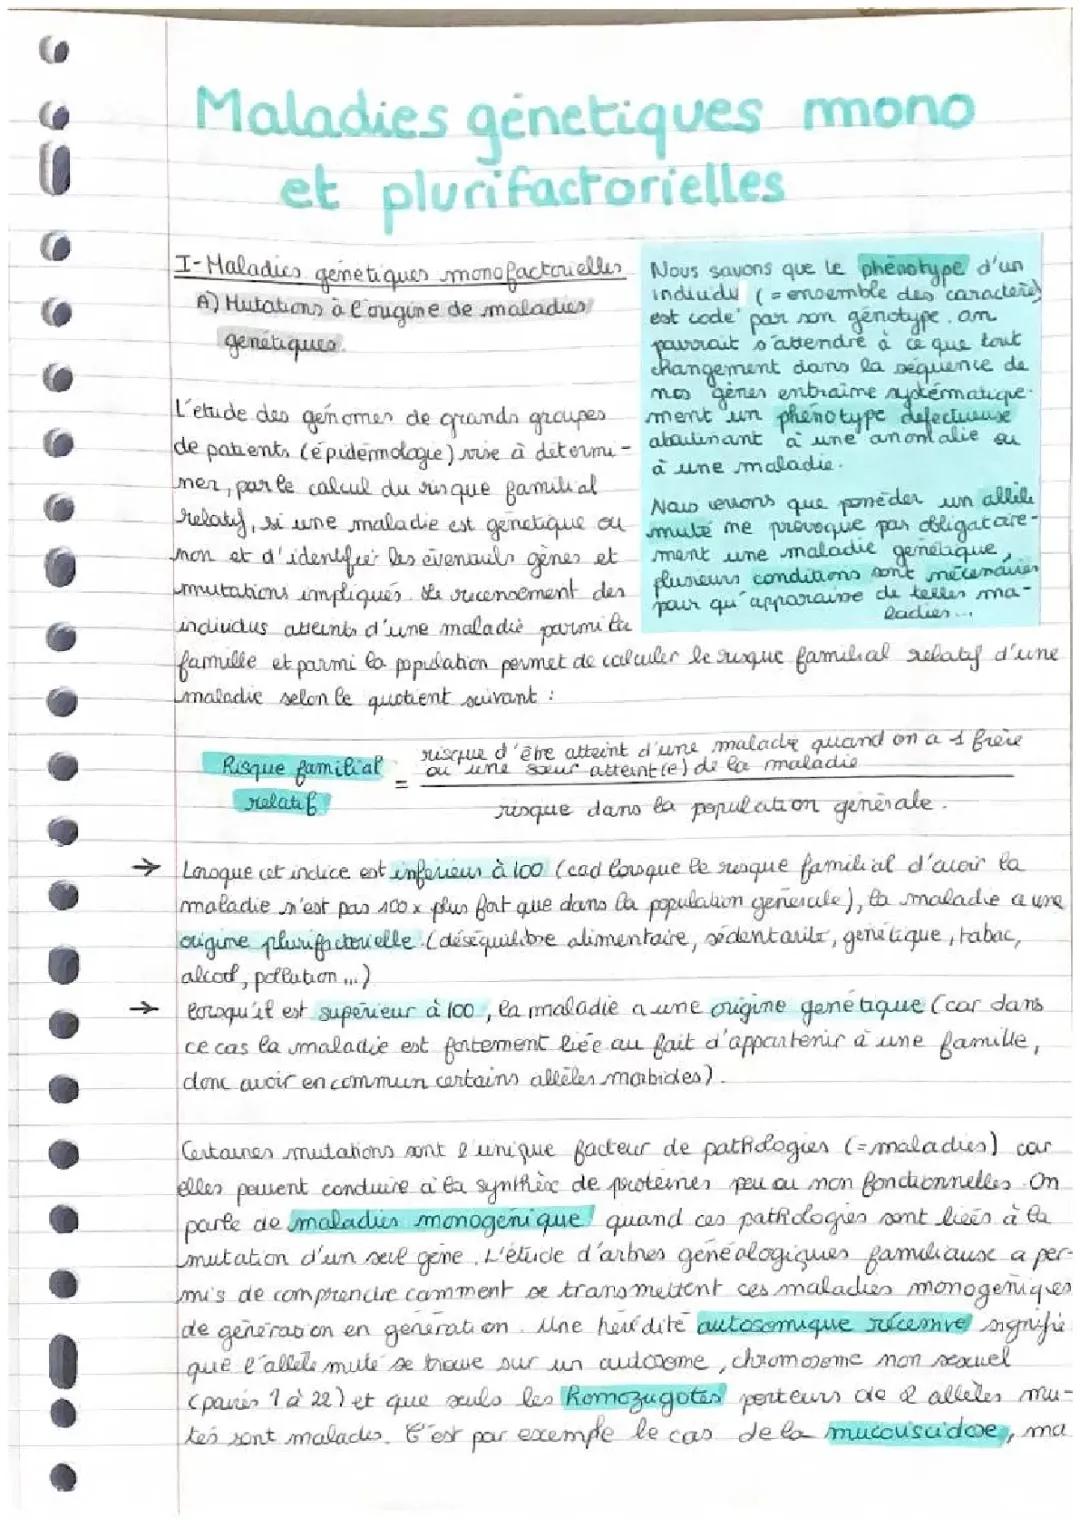 Maladies génetiques mono
et plurifactorielles
I- Maladies génétiques monofactorielles
A) Mutations à l'origine de maladies
génétiques.
Nous savons que le phénotype d'un
individu (= ensemble des caractères)
est codé par son génotype. on
pourrait s'attendre à ce que tout
changement dans la séquence de
nos gènes entraîne systématique-
ment un phénotype défectueuse
aboutinant à une anomalie ou
à une maladie.
Nous verrons que posséder un allèle
muté ne provoque pas obligatoire-
ment une maladie génétique,
plusieurs conditions sont nécessaires
pour qu'apparaisse de telles ma-
ladies...
L'étude des génomes de grands groupes
de patients (épidémologie) vise à détermi-
ner, par le calcul du risque familial
relatif, si une maladie est génétique ou
non et d'identifier les éventuels gènes et
mutations impliqués. Le recensement des
individus atteints d'une maladie parmi la
famille et parmi la population permet de calculer le risque familial relatif d'une
maladie selon le quotient suivant :
Risque familial
relatif
=
risque d'être atteint d'une maladie quand on a 1 frère
ou une sœur atteint(e) de la maladie
risque dans la population générale.
→ Lorsque cet indice est inférieur à 100 (cad lorsque le risque familial d'avoir la
maladie n'est pas 100 x plus fort que dans la population générale), la maladie a une
origine plurifactorielle (déséquilibre alimentaire, sédentarité, génétique, tabac,
alcool, pollution ...)
→ lorsqu'il est supérieur à 100, la maladie a une origine génétique (car dans
ce cas la maladie est fortement liée au fait d'appartenir à une famille,
donc avoir en commun certains allèles morbides).
Certaines mutations sont l'unique facteur de pathologies (= maladies) car
elles peuvent conduire à la synthèse de protéines peu ou non fonctionnelles. On
parle de maladies monogénique quand ces pathologies sont liées à la
mutation d'un seul gène. L'étude d'arbres généalogiques familiause a per-
mis de comprendre comment se transmettent ces maladies monogéniques
de génération en génération. Une hérédité autosomique récessive signifie
que l'allèle muté se trouve sur un autosome, chromosome non sexuel
(paires 1 à 22) et que seuls les homozygotes porteurs de 2 allèles mu-
tés sont malades. C'est par exemple le cas de la mucoviscidose, ma